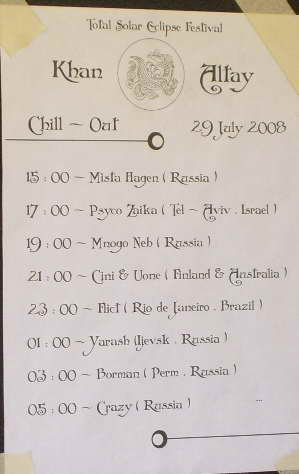 Total Solar Eclipse Festival
Khan Altay
Chill ~ Out 29 July 2008
15 : 00 ~ Mista Hagen ( Russia )
17 : 00 ~ Psyco Zaika ( Tel ~ Aviv . Israel )
19 : 00 ~ Mnogo Neb ( Russia )
21 : 00 ~ Cini & Uone ( Finland & Australia )
23 : 00 ~ Flict ( Rio de Janeiro . Brazil )
01 : 00 ~ Yarash (Ijevsk . Russia )
03 : 00 ~ Borman ( Perm . Russia )
05 : 00 ~ Crazy ( Russia )